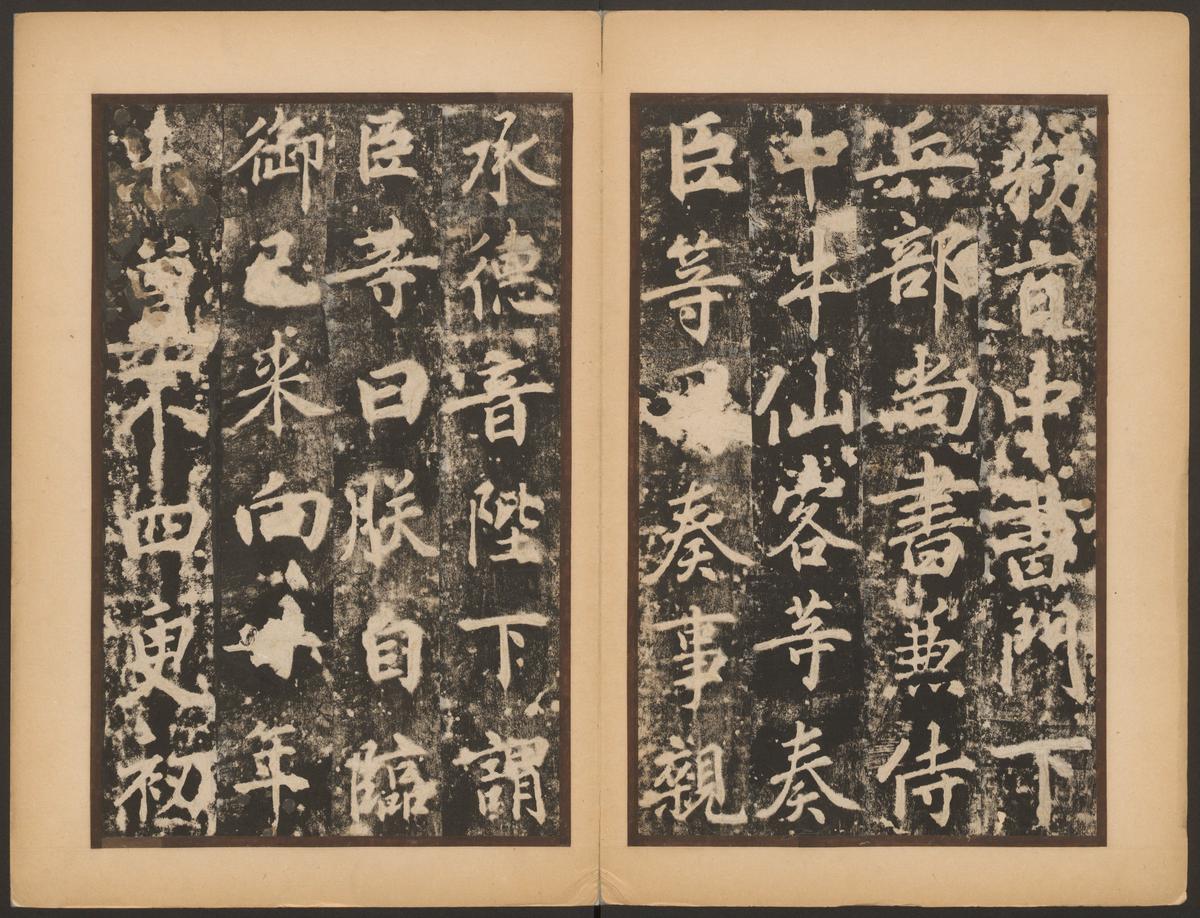 勅旨中書門下
兵部尚書兼侍
中牛仙客等奏
臣等奏事親
承德音陛下謂
臣等曰朕自臨
御已來向年
未曾不四更初